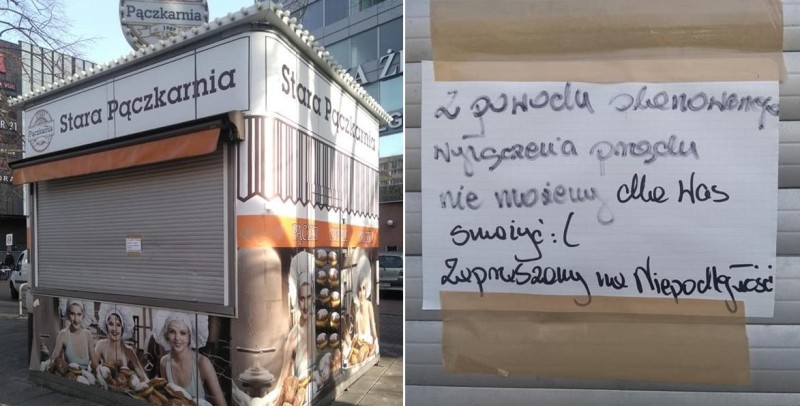 Pączkarnia
Stara Pączkarnia
Stara Pączkarnia
Pączkarnia
Z powodu
wyłączenia prądu
nie możemy dla Was
smażyć :(
Zapraszamy na Niepodległość